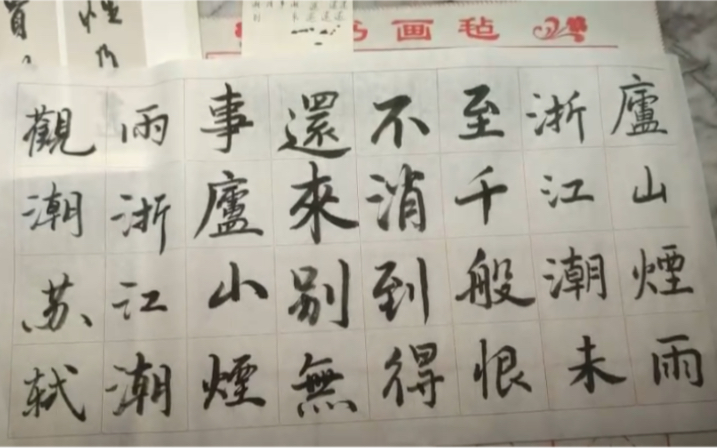 画毡
廬山煙雨
浙江潮未
至千般恨
不消到得
還來别無
事廬山煙
雨浙江潮
觀潮苏轼